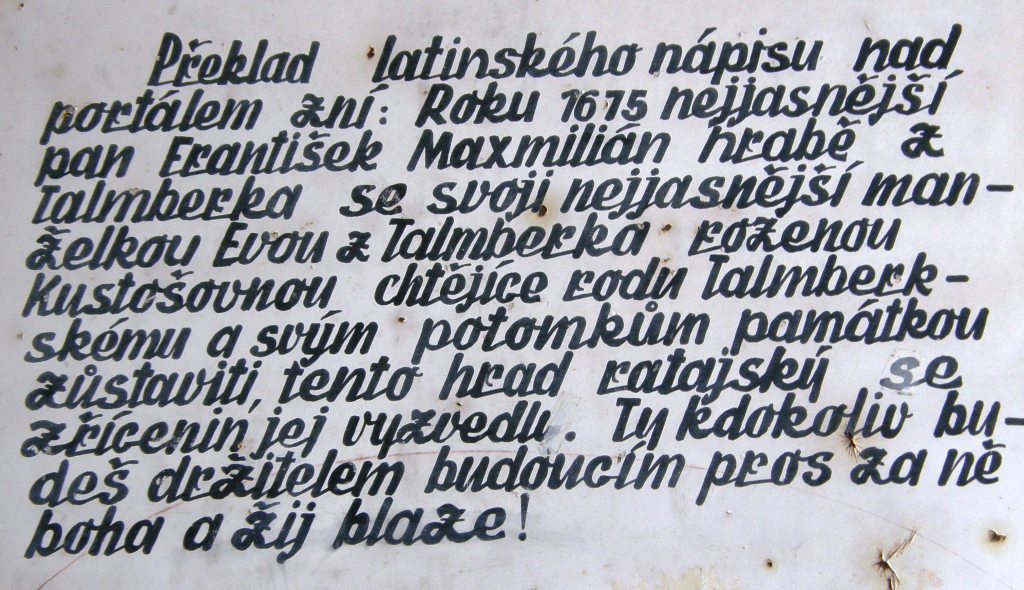 Překlad latinského nápisu nad
portálem zní: Roku 1675 nejjasnější
pan František Maxmilián hrabě z
Talmberka se svoji nejjasnější man-
želkou Evou z Talmberka roženou
Kustošovnou chtějíce rodu Talmberk-
skému a svým potomkům památkou
zůstaviti, tento hrad ratajský se
zřícenin jej vyzvedl. Ty kdokoliv bu-
deš držitelem budoucím pros za ně
boha a žij blaze!